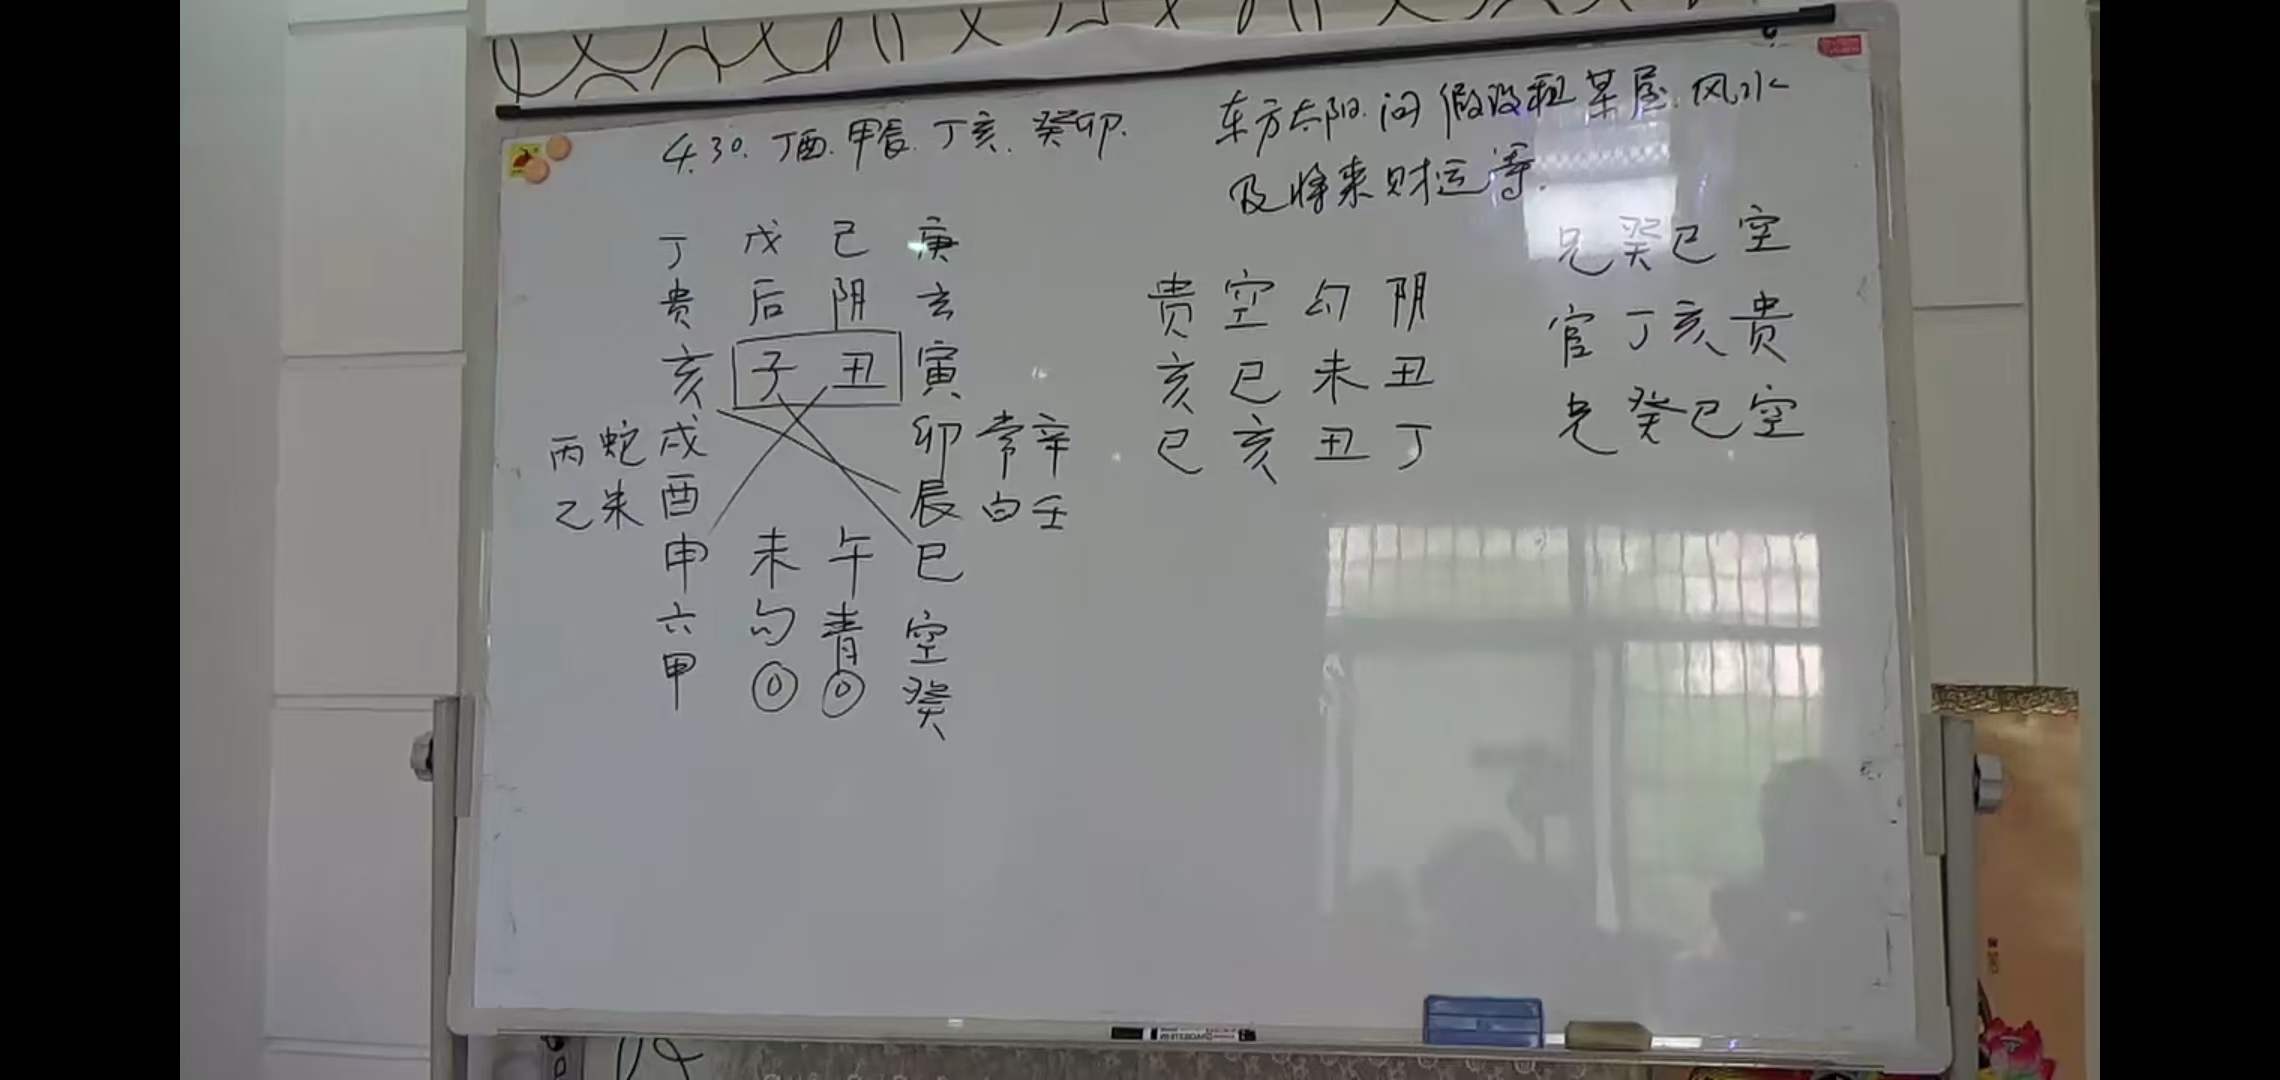 4.30.丁酉.甲辰.丁亥.癸卯.
东方太阳.问假设租某屋.风水
及将来财运等.
丁 戊 己 庚
贵 后 阴 玄
亥 子 丑 寅
丙 蛇 戌 卯 常 辛
乙 朱 酉 辰 白 壬
申 未 午 巳
六 勾 青 空
甲 ◎ ◎ 癸
贵 空 勾 阴
亥 巳 未 丑
巳 亥 丑 丁
兄 癸 巳 空
官 丁 亥 贵
兄 癸 巳 空